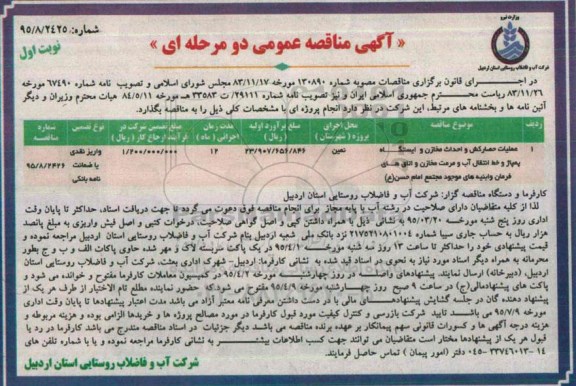 وزارت نیرو
شرکت آب و فاضلاب روستایی استان اردبیل
شماره: ۹۵/۸/۲۴۲۵
نوبت اول
« آگهی مناقصه عمومی دو مرحله ای »
در اجرای قانون برگزاری مناقصات مصوبه شماره ۱۳۰۸۹۰ مورخه ۸۳/۱۱/۱۷ مجلس شورای اسلامی و تصویب نامه شماره ۶۷۴۹۰ مورخه
۸۳/۱۱/۲۶ ریاست محترم جمهوری اسلامی ایران و نیز تصویب نامه شماره ۲۹۱۱۱/ت ۳۳۵۸۳ هـ مورخه ۸۴/۵/۱۱ هیات محترم وزیران و دیگر
آئین نامه ها و بخشنامه های مرتبط، این شرکت در نظر دارد انجام پروژه ای با مشخصات کلی ذیل را به مناقصه بگذارد.
ردیف موضوع مناقصه محل اجرای پروژه (شهرستان) مبلغ برآورد اولیه (ریال) مدت زمان اجرائی (ماه) مبلغ تضمین شرکت در فرآیند ارجاع کار (ریال) نوع تضمین شماره مناقصه
۱ عملیات حصارکشی و احداث مخازن و ایستگاه پمپاژ و خط انتقال آب و مرمت مخازن و اتاق های فرمان وابنیه های موجود مجتمع امام حسن(ع) نمین ۲۳/۹۰۷/۶۵۶/۸۴۶ ۱۲ ۱/۲۰۰/۰۰۰/۰۰۰ واریز نقدی یا ضمانت نامه بانکی ۹۵/۸/۲۴۲۶
کارفرما و دستگاه مناقصه گزار: شرکت آب و فاضلاب روستایی استان اردبیل
لذا از کلیه متقاضیان دارای صلاحیت در رشته آب با پایه مجاز برای انجام مناقصه فوق دعوت می گردد تا جهت دریافت اسناد، حداکثر تا پایان وقت
اداری روز پنج شنبه مورخسه ۹۵/۰۳/۲۰ به نشانی ذیل با همراه داشتن کپی و اصل گواهی صلاحیت، درخواست کتبی و اصل فیش واریزی به مبلغ پانصد
هزار ریال به حساب جاری سیبا شماره ۲۱۷۵۲۹۱۰۸۱۰۰۴ نزد بانک ملی شعبه اردبیل بنام شرکت آب و فاضلاب روستایی استان اردبیل مراجعه نموده و
قیمت پیشنهادی خود را حداکثر تا ساعت ۱۳ روز سه شنبه مورخه ۹۵/۴/۱ در پاکت دربسته لاک و مهر شده حاوی پاکات الف و ب و ج بطور
محرمانه به همراه دیگر اسناد مورد نیاز به نحوی در اسناد قید شده به نشانی کارفرما: اردبیل- شهرک اداری بعثت، شرکت آب و فاضلاب روستایی استان
اردبیل، (دبیرخانه) ارسال نمایند. پیشنهادهای واصله روز چهارشنبه مورخه ۹۵/۴/۲ در کمیسیون معاملات کارفرما مفتوح و خوانده می شود و
پاکت های پیشنهادمالی(ج) در ساعت ۹ صبح روز چهارشنبه مورخه ۹۵/۴/۹ مفتوح می شود. که حضور نماینده مطلع تام الاختیار از طرف هر یک از
پیشنهاد دهنده گان در جلسه گشایش پیشنهادهای مالی با در دست داشتن معرفی نامه معتبر آزاد می باشد مدت اعتبار پیشنهادها تا پایان وقت اداری
مورخه ۹۵/۷/۹ می باشد تایید شرکت بازرسی و کنترل کیفیت مورد قبول کارفرما در مورد مصالح پروژه ها و خریدها الزامی بوده و هزینه مربوطه و
هزینه درجه آگهی ها و کسورات قانونی سهم پیمانکار بر عهده برنده مناقصه می باشد دیگر جزئیات در اسناد مناقصه مندرج می باشد کارفرما در رد یا
قبول هر یک از پیشنهادها مختار است متقاضیان می توانند جهت کسب اطلاعات بیشتر به نشانی کارفرما مراجعه نموده و یا با شماره تلفن های
۱۴-۳۳۷۴۶۰۱۳-۰۴۵ دفتر (امور پیمان) تماس حاصل فرمایند.
شرکت آب و فاضلاب روستایی استان اردبیل